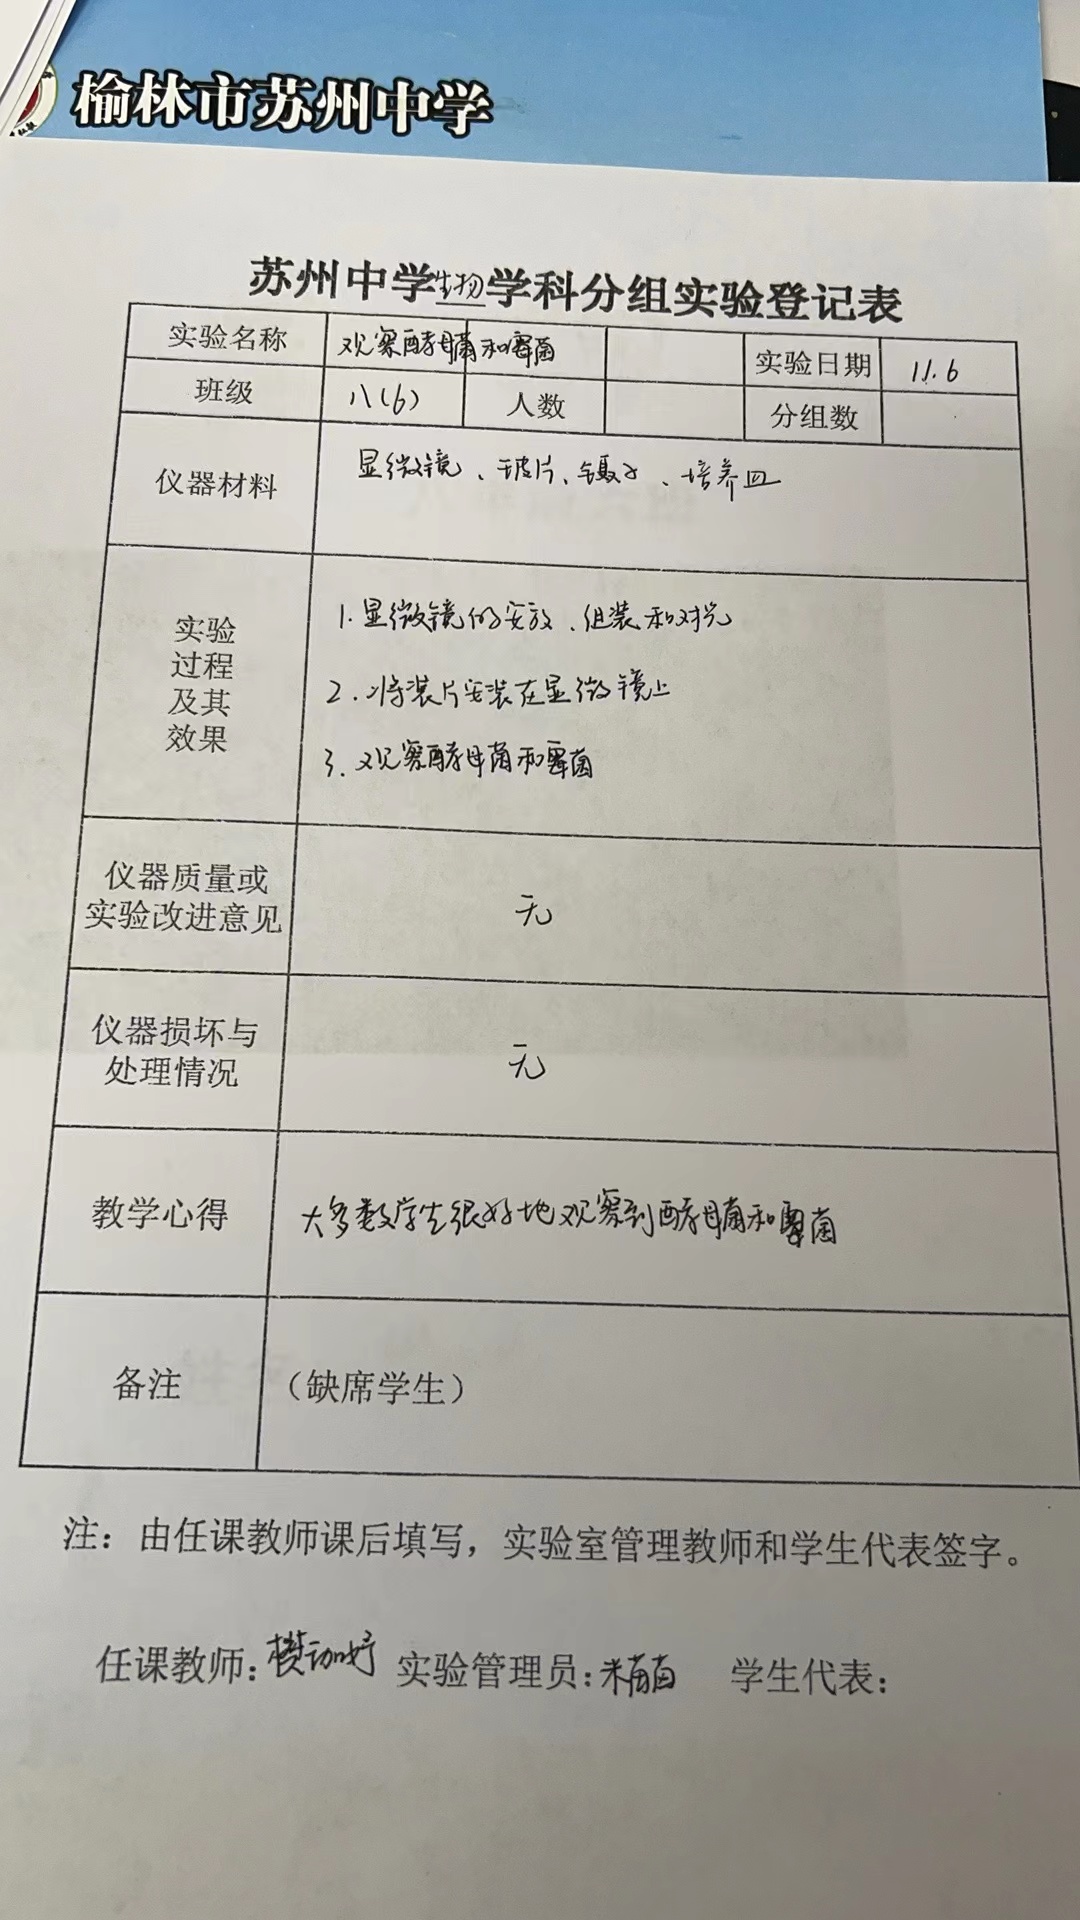 榆林市苏州中学
苏州中学生物学科分组实验登记表
实验名称 观察酵母菌和霉菌 实验日期 11.6
班级 八(6) 人数 分组数
仪器材料 显微镜、玻片、镊子、培养皿
实验
过程
及其
效果
1.显微镜的安放、组装和对光
2.将装片安装在显微镜上
3.观察酵母菌和霉菌
仪器质量或
实验改进意见
无
仪器损坏与
处理情况
无
教学心得 大多数学生很好地观察到酵母菌和霉菌
备注 (缺席学生)
注：由任课教师课后填写，实验室管理教师和学生代表签字。
任课教师： 实验管理员： 学生代表：